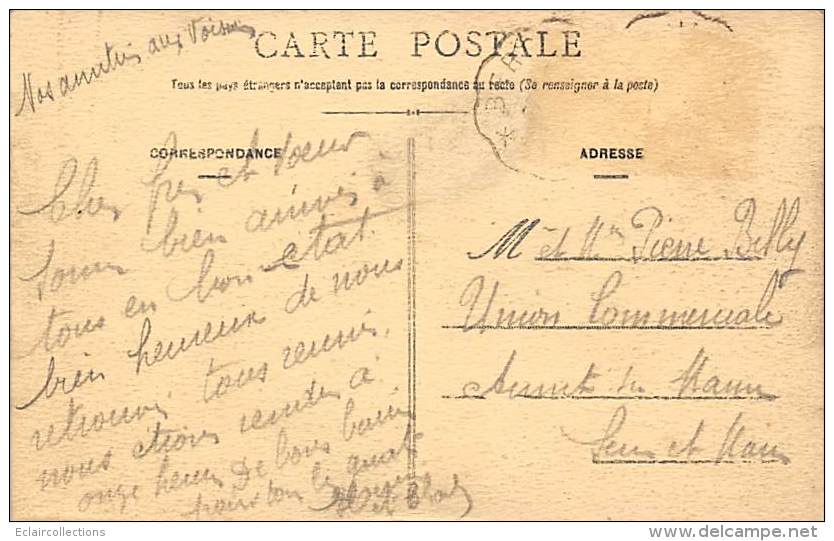 Nos amitiés aux Voisins
CARTE POSTALE
Tous les pays étrangers n'acceptent pas la correspondance au recto (Se renseigner à la poste)
BER
CORRESPONDANCE
Cher frère et soeur
somes bien arrivés à
tous en bon état.
bien heureux de nous
retrouver tous réunis,
nous étions rendus à
onze heures De bons baisers
pour tous les quatre
ADRESSE
Mr et Mme Pierre Billy
Union Commerciale
Annet sur Marne
Seine et Marne
Eclaircollections